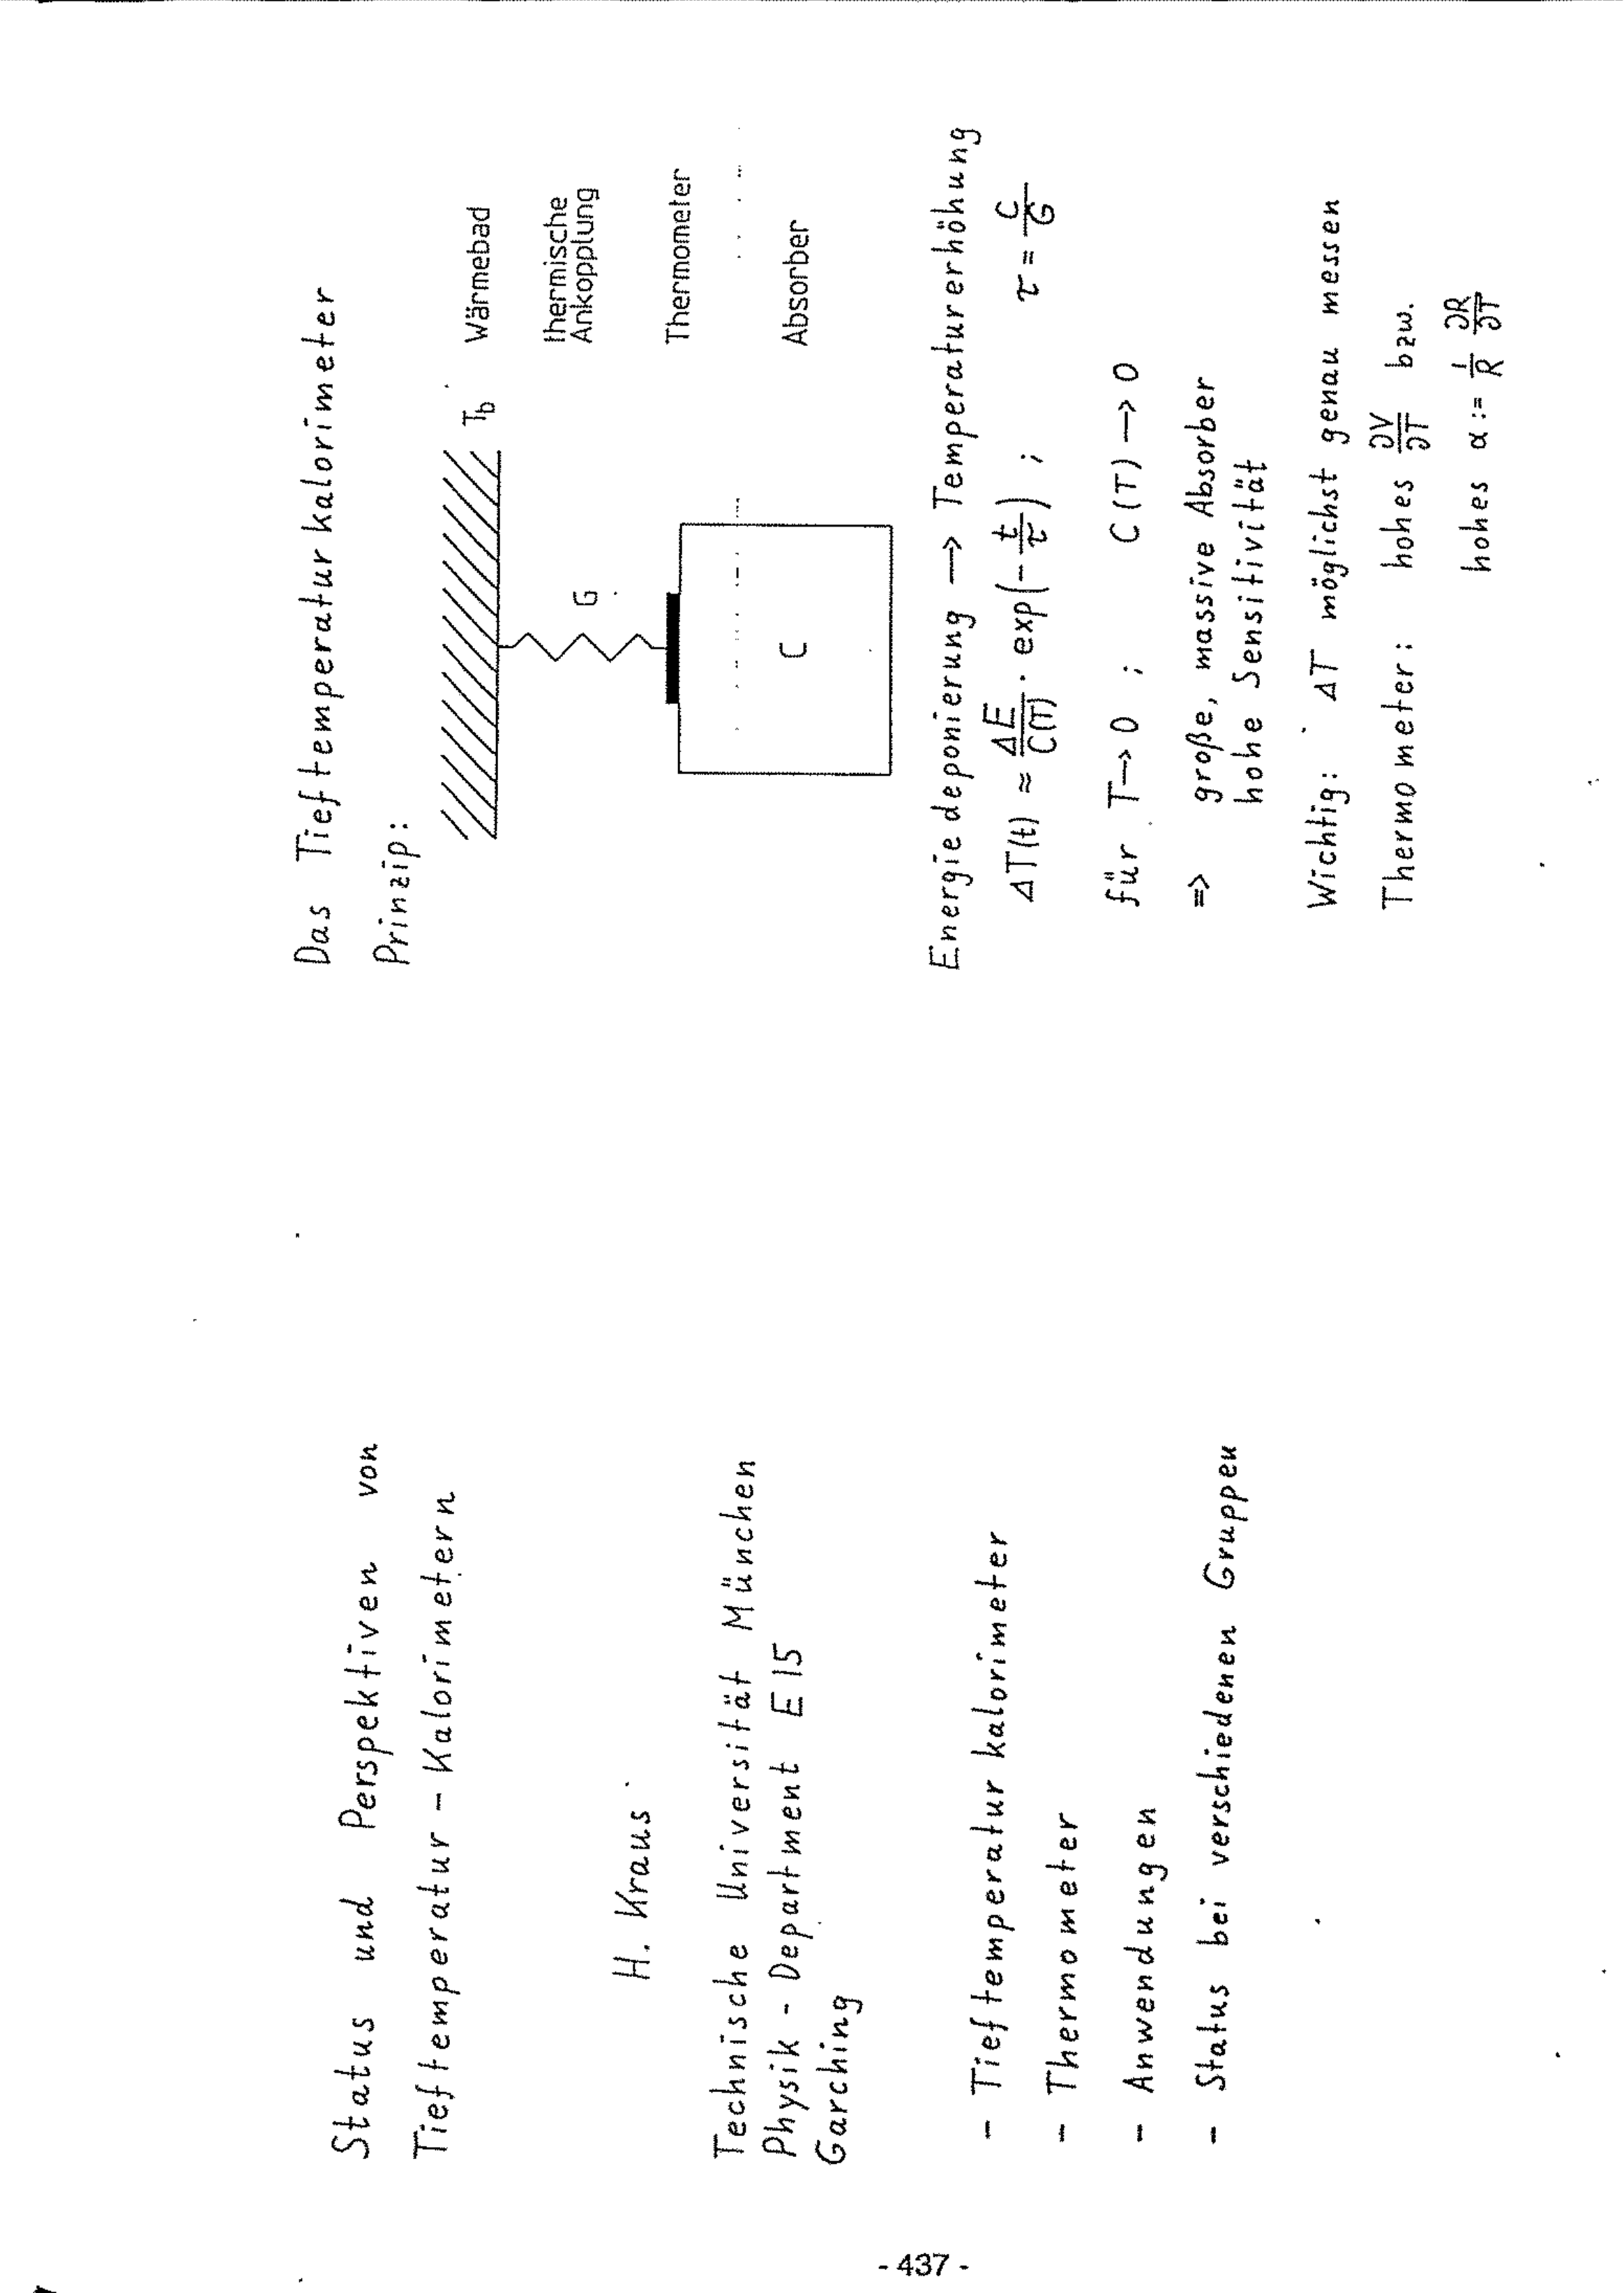 Status und Perspektiven von
Tieftemperatur - Kalorimetern
H. Kraus
Technische Universität München
Physik - Department E15
Garching
- Tieftemperaturkalorimeter
- Thermometer
- Anwendungen
- Status bei verschiedenen Gruppen
Das Tieftemperaturkalorimeter
Prinzip:
T_b Wärmebad
G Thermische
Ankopplung
Thermometer
C Absorber
Energiedeponierung → Temperaturerhöhung
ΔT(t) ≈ ΔE/C(T) · exp(-t/τ) ; τ = C/G
für T→0 ; C(T) → 0
=> große, massive Absorber
hohe Sensitivität
Wichtig: ΔT möglichst genau messen
Thermometer: hohes ∂V/∂T bzw.
hohes α := 1/R ∂R/∂T
- 437 -